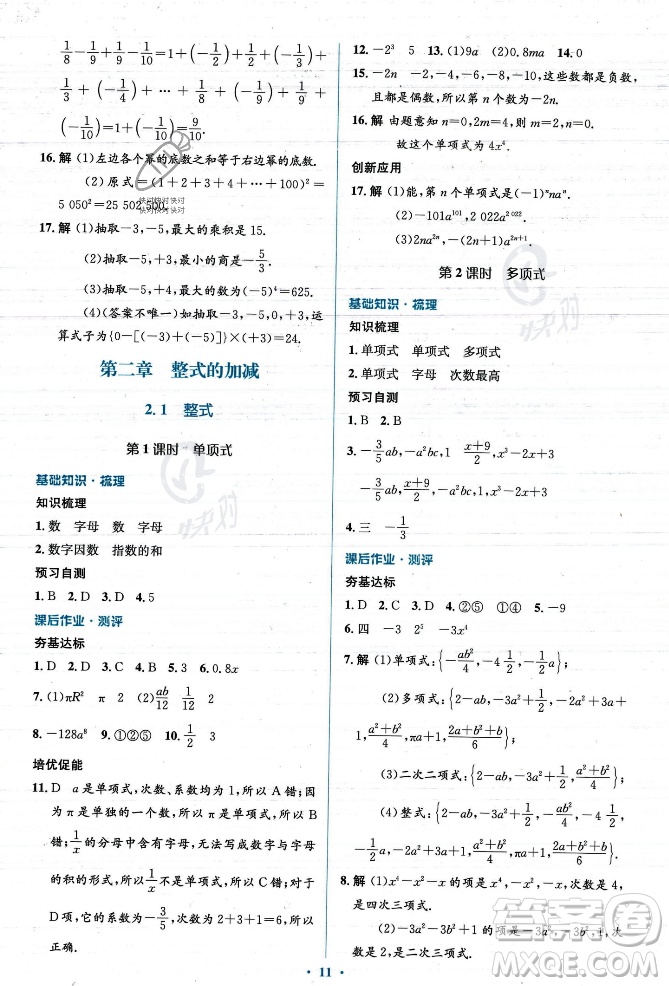 1/8-1/9+1/9-1/10=(1/8-1/8)+(1/9-1/9)+(1/10-1/10)=1+(-1/10)=9/10.
16.解 (1)左边各个幂的底数之和等于右边幂的底数.
(2)原式=(1+2+3+4+5+6+…+100)²=
5 050²=25 502 500.
17.解 (1)抽取-3,-5,最大的乘积是15.
(2)抽取-5,+3,最小的商是-5/3.
(3)抽取-5,+4,最大的数为(-5)⁴=625.
(4)(答案不唯一)如抽取-3,-5,0,+3,运
算式子为{0-[(-3)+(-5)]}×(+3)=24.
第二章 整式的加减
2.1 整式
第1课时 单项式
基础知识·梳理
知识梳理
1.数 字母 数 字母
2.数字因数 指数的和
预习自测
1.B 2.D 3.D 4.5
课后作业·测评
夯基达标
1.D 2.D 3.A 4.D 5.3 6.0.8x
7.(1)πR² π 2 (2)ab/12 1/12 2
8.-128a⁸ 9.①②⑤ 10.1/2 3
培优促能
11.D a是单项式,次数、系数均为1,所以A错;
因为π是单独的一个数,所以π是单项式,所以B
错;1/x的分母中含有字母,无法写成数字与字母
的积的形式,所以1/x不是单项式,所以C错;对于
D项,它的系数为-3/5,次数为2+1=3,所以D
正确.
12.-2³ 5 13.(1)9a (2)0.8ma 14.0
15.-2n -2,-4,-6,-8,-10,这些数都是负数,
且都是偶数,所以第n个数为-2n.
16.解 由题意知n=0,2+m=4,则m=2.
故这个单项式为4x⁴.
创新应用
17.(1)能,第n个单项式是(-1)ⁿnaⁿ.
(2)-101a¹⁰¹,2 022a²⁰²².
(3)2na²ⁿ,-(2n+1)a²ⁿ⁺¹.
第2课时 多项式
基础知识·梳理
知识梳理
1.单项式 单项式 多项式
2.单项式 字母 次数最高
预习自测
1.B 2.B
3.-3/5ab,-a²bc (x+9)/2,x³-2x+3
-3/5ab,(x+9)/2,-a²bc,x³-2x+3
4.三 -1/3
课后作业·测评
夯基达标
1.D 2.C 3.A 4.②⑤ ①④ 5.-9
6.四 -3 2⁵ -3x⁴
7.解 (1)单项式:{-ab²/4,-1/2a};
(2)多项式:{2-ab,-3a²+1/2,πa+
1,(a²+b²)/4,(2a+b)/6};
(3)二次二项式:{2-ab,-3a²+1/2,(a²+b²)/4};
(4)整式:{2-ab,-3a²+1/2,-ab²/4,
-1/2a,(a²+b²)/4,πa+1,(2a+b)/6}.
8.解 (1)x⁴-x²-x的项是x⁴,-x²,-x,次数是4,
是四次三项式.
(2)-3a²-3b²+1的项是-3a²,-3b²,1,次
数是2,是二次三项式.
11